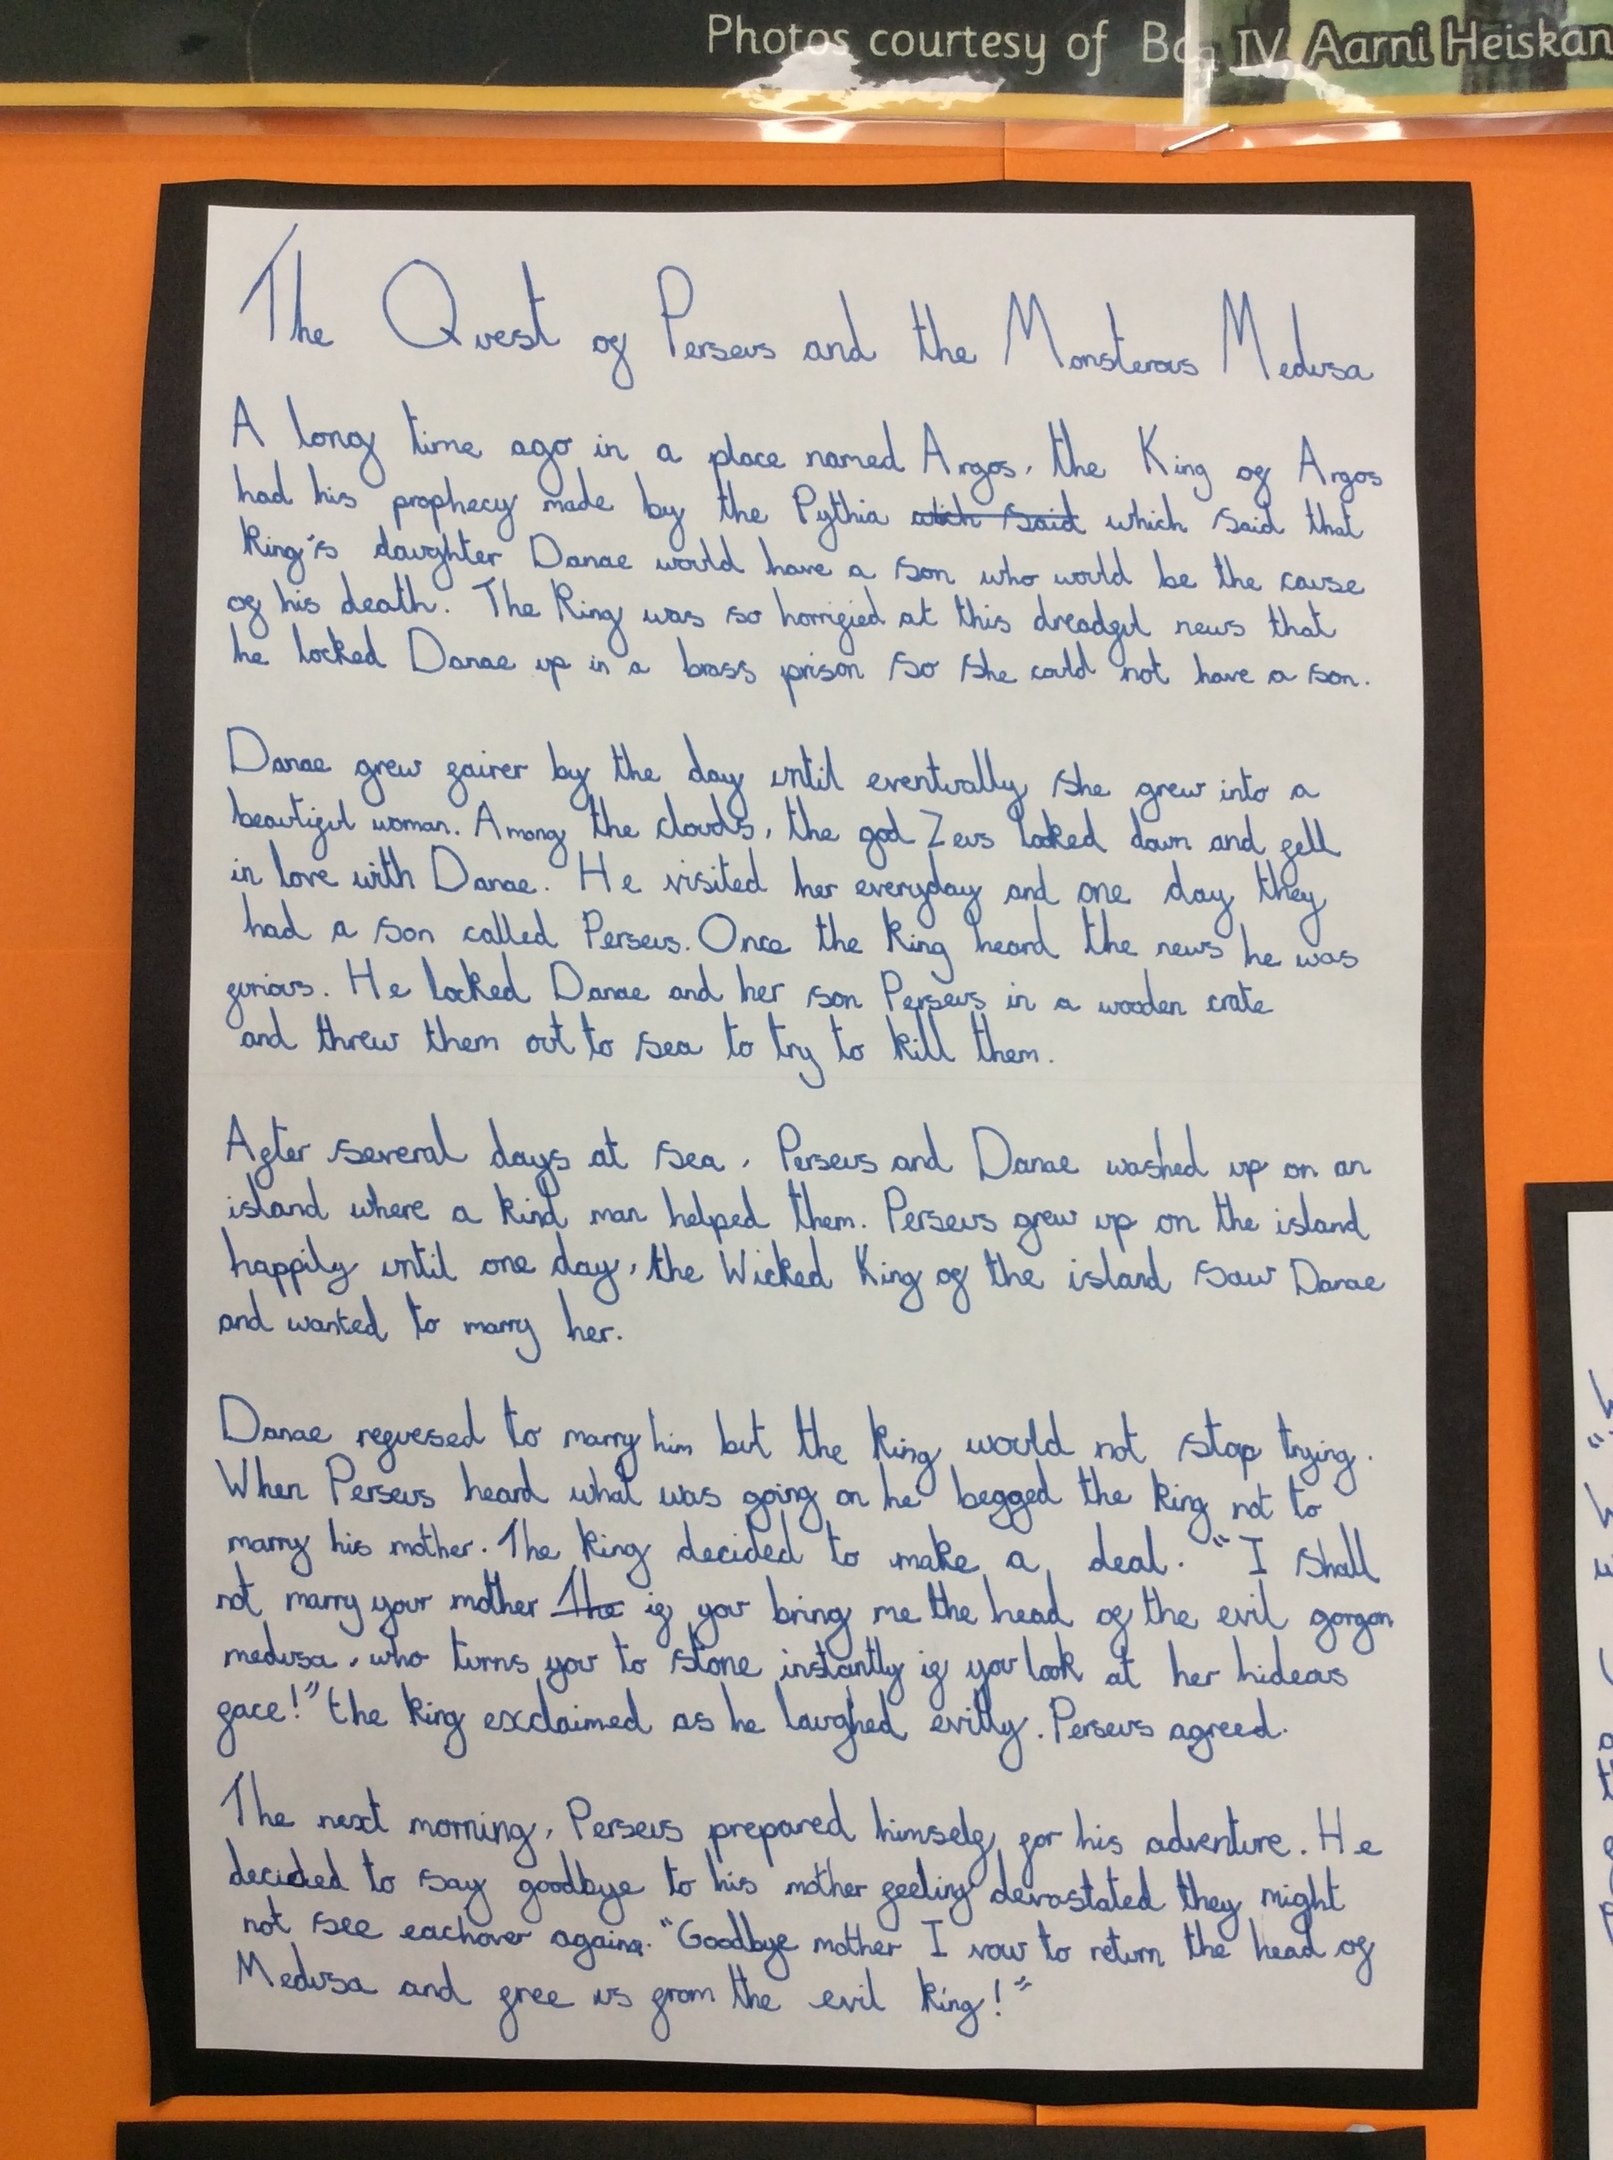 Photos courtesy of Bob IV, Aarni Heiskan
The Quest of Perseus and the Monsterous Medusa
A long time ago in a place named Argos, the King of Argos
had his prophecy made by the Pythia wich said which said that
King's daughter Danae would have a son who would be the cause
of his death. The King was so horrified at this dreadful news that
he locked Danae up in a brass prison so she could not have a son.
Danae grew fairer by the day until eventually she grew into a
beautiful woman. Among the clouds, the god Zeus looked down and fell
in love with Danae. He visited her everyday and one day they
had a son called Perseus. Once the King heard the news he was
furious. He locked Danae and her son Perseus in a wooden crate
and threw them out to sea to try to kill them.
After several days at sea, Perseus and Danae washed up on an
island where a kind man helped them. Perseus grew up on the island
happily until one day, the Wicked King of the island saw Danae
and wanted to marry her.
Danae refuesed to marry him but the King would not stop trying.
When Perseus heard what was going on he begged the King not to
marry his mother. The King decided to make a deal. "I shall
not marry your mother The if you bring me the head of the evil gorgon
medusa, who turns you to stone instantly if you look at her hideous
face!" the King exclaimed as he laughed evilly. Perseus agreed.
The next morning, Perseus prepared himself for his adventure. He
decided to say goodbye to his mother feeling devastated they might
not see eachover again. "Goodbye mother I vow to return the head of
Medusa and free us from the evil King!"